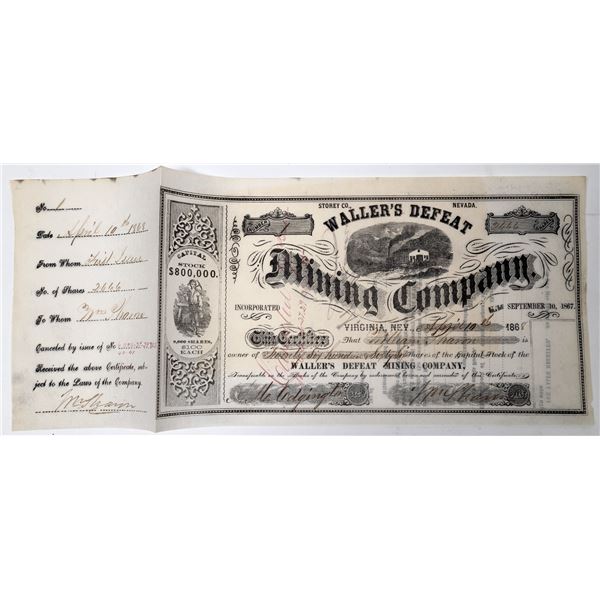 No. 1
Date April 10th 1868
From Whom First Issue
No. of Shares 2666
To Whom Wm Sharon
Canceled by issue of No
Received the above Certificate, sub-
ject to the Laws of the Company.
Wm Sharon
CAPITAL
STOCK
$800,000.
8,000 SHARES,
$100
EACH
STOREY CO., NEVADA.
WALLER'S DEFEAT
No. 1 2666 Shares
Mining Company.
INCORPORATED SEPTEMBER 10, 1867.
VIRGINIA, NEV. April 10th 1868
This Certifies That William Sharon is
owner of Twenty Six hundred Sixty Six Shares of the Capital Stock of the
WALLER'S DEFEAT MINING COMPANY,
Transferable on the Books of the Company by indorsement hereon and surrender of this Certificate.
Wm Sharon